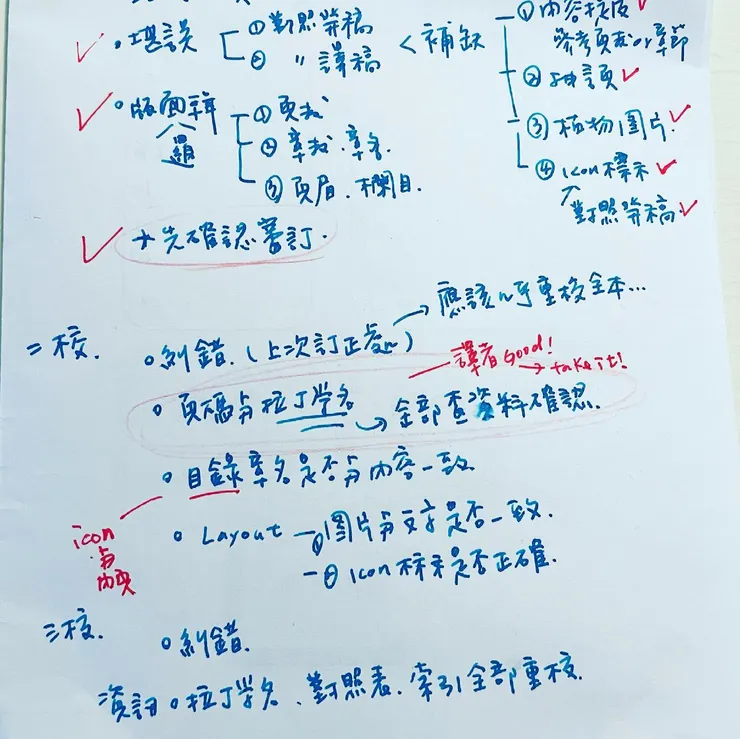 。堪誤 ①對照等稿 < 補缺
② 〃 譯稿
①內容核反
參考頁或or章節
②抽讀
③植物圖片
④icon標示
對照等稿
。版面
①頁
②章、章名
③頁眉、欄目
→先確認審訂.
二校. 。糾錯.(上次訂正處) → 應該似乎重校全本…
。頁碼與拉丁學名 → 全部查資料確認.
譯者Good!
→take it!
。目錄章名是否與內容一致
icon
與
內頁
。Layout ─①圖片與文字是否一致.
─②icon標示是否正確.
三校. 。糾錯.
資訊。拉丁學名、對照表、索引全部重校.